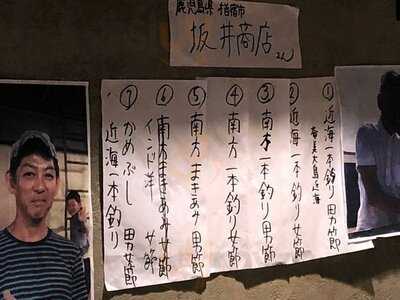 鹿児島県 指宿市
坂井商店さん
① 近海一本釣り男節
奄美大島近海
② 近海一本釣り女節
③ 南方一本釣り男節
④ 南方一本釣り女節
⑤ 南方まきあみ男節
⑥ 南方まきあみ女節
インド洋 女節
⑦ かめぶし 男女節
近海一本釣り